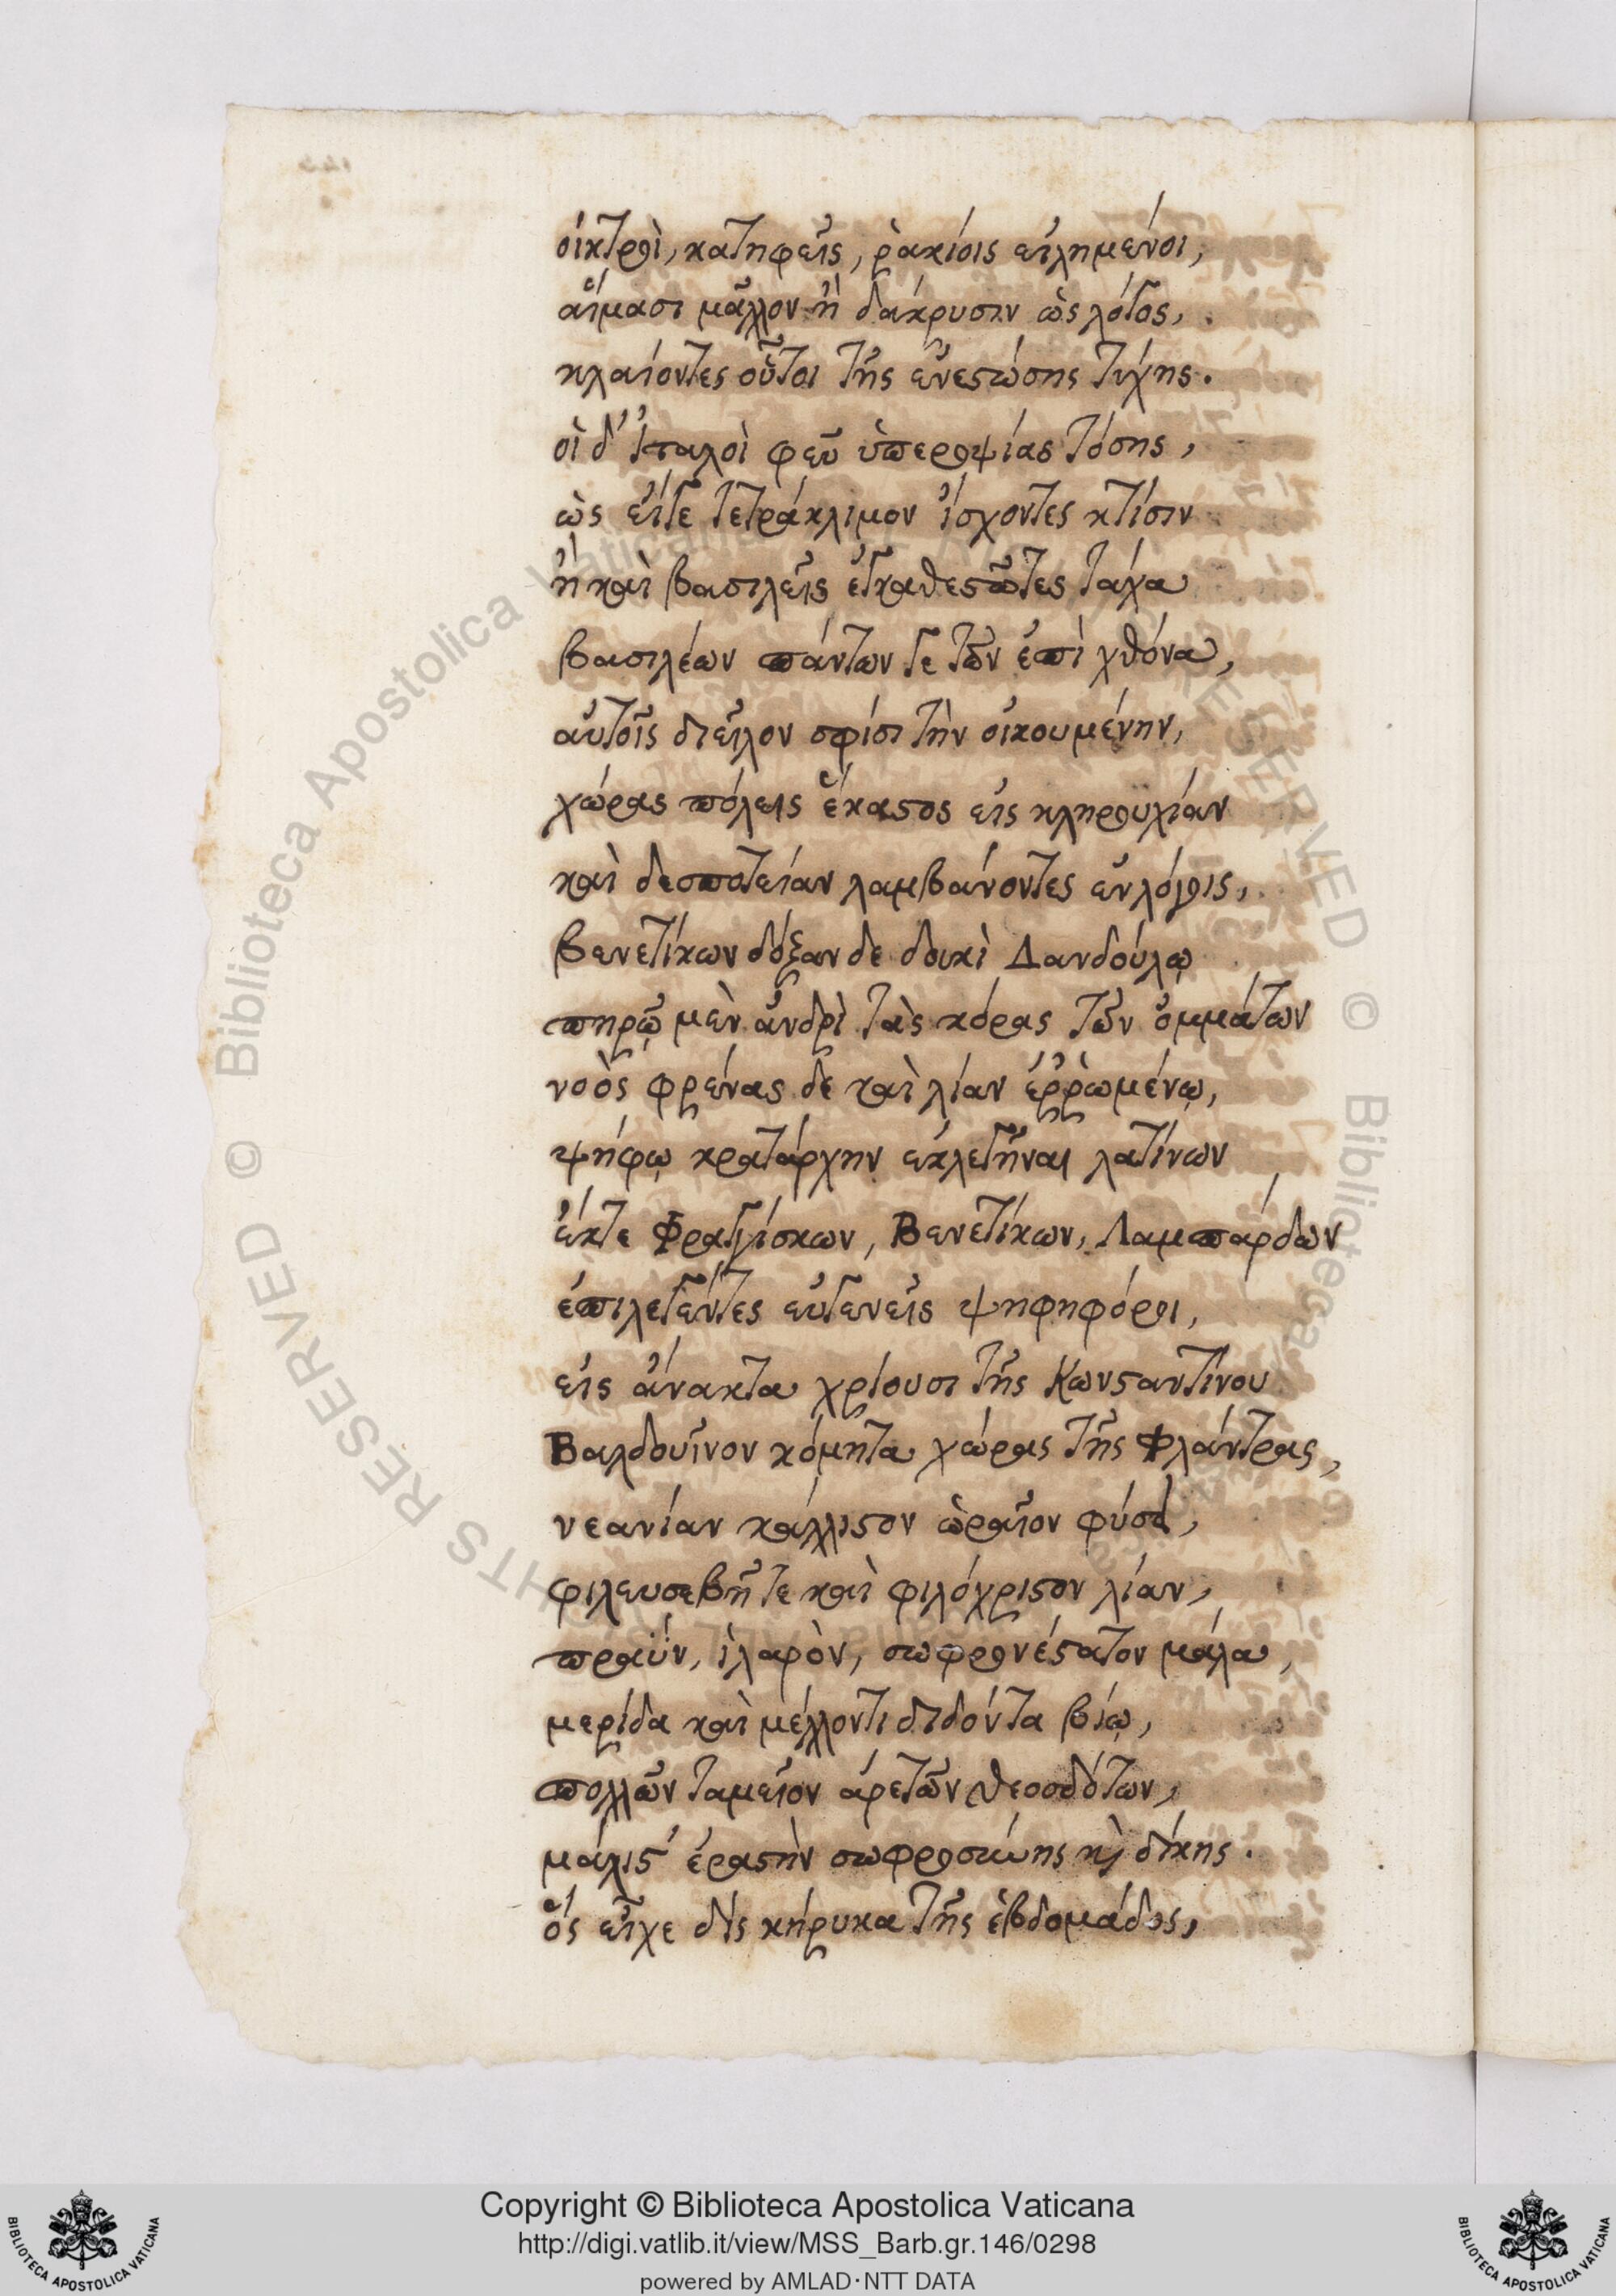 οἰκτροὶ, κατηφεῖς, ῥακίοις εἰλημένοι,
αἵμασι μᾶλλον ἢ δάκρυσιν ὡς λόγος,
κλαίοντες οὗτοι τῆς ἐνεστώσης τύχης.
οἱ δ' Ἰταλοὶ φεῦ ὑπεροψίας τόσης,
ὡς εἴγε τετράκλιμον ἴσχοντες κτίσιν
ἢ καὶ βασιλεῖς ἐγκαθεστῶτες τάχα
βασιλέων πάντων γε τῶν ἐπὶ χθόνα,
αὐτοῖς διεῖλον σφίσι τὴν οἰκουμένην,
χώρας πόλεις ἕκαστος εἰς κληρουχίαν
καὶ δεσποτείαν λαμβάνοντες ἐν λόγοις,
βενετίκων δόξαν δε δουκὶ Δανδούλῳ
πηρῷ μὲν ἀνδρὶ τὰς κόρας τῶν ὀμμάτων
νοὸς φρένας δε καὶ λίαν ἐῤῥωμένῳ,
ψήφῳ κρατάρχην ἐκλεγῆναι λατίνων
ἔκτε Φραγγίσκων, Βενετίκων, Λαμπάρδων
ἐπιλεγέντες εὐγενεῖς ψηφηφόροι,
εἰς ἄνακτα χρίουσι τῆς Κωνσταντίνου
Βαλδουῖνον κόμητα χώρας τῆς Φλάντρας,
νεανίαν κάλλιστον ὡραῖον φύσει,
φιλευσεβῆ τε καὶ φιλόχριστον λίαν,
πραῢν, ἱλαρὸν, σωφρονέστατον μάλα,
μερίδα καὶ μέλλοντι διδόντα βίῳ,
πολλῶν ταμεῖον ἀρετῶν θεοσδότων,
μάλιστ' ἐραστὴν σωφροσύνης κὶ δίκης.
ὃς εἶχε δὶς κήρυκα τῆς ἑβδομάδος,
Copyright © Biblioteca Apostolica Vaticana
http://digi.vatlib.it/view/MSS_Barb.gr.146/0298
powered by AMLAD·NTT DATA